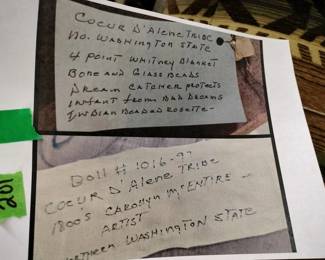 COEUR D'ALENE TRIBE
NO. WASHINGTON STATE
4 POINT WHITNEY BLANKET
BONE AND GLASS BEADS
DREAM CATCHER PROTECTS
INFANT FROM BAD DREAMS
INDIAN BEADED ROSETTE-
Doll # 1016-97
COEUR D'ALENE TRIBE
1800s CAROLYN McENTIRE -
ARTIST
NORTHERN WASHINGTON STATE
201